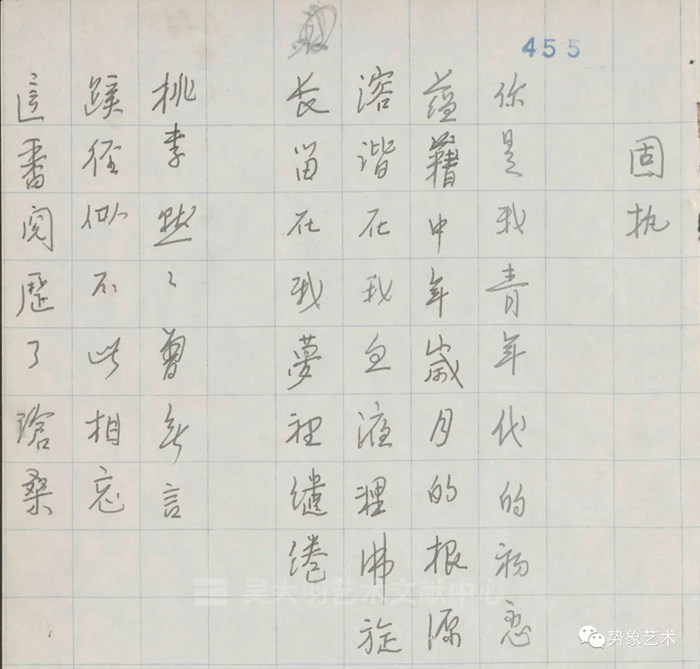 455
固执
你是我青年代的初恋
蕴藉中年歲月的根源
溶谐在我血液裡沸旋
长留在我夢裡缱绻
桃李默々曾無言
蹊径似不此相忘
這番阅歷了滄桑
吴大羽艺术文献中心
势象艺术